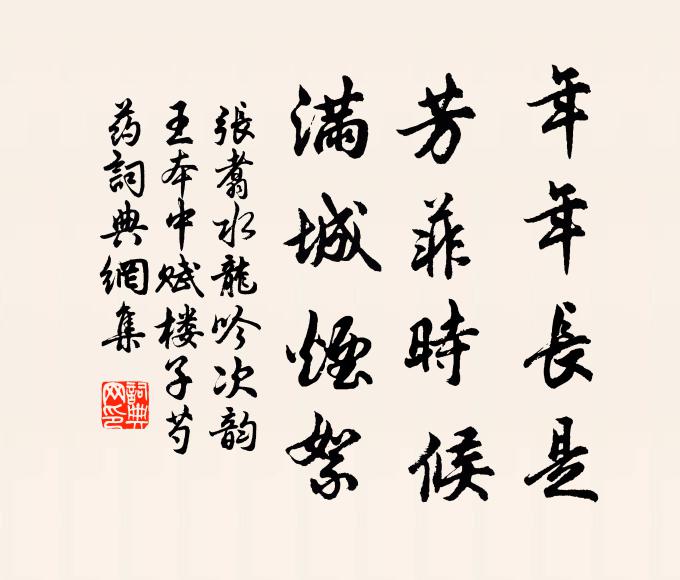 年年長是
芳菲時候
滿城煙絮
張翥水龍吟次韵
王本中赋楼子芍
药詞典網集
詞典
网印